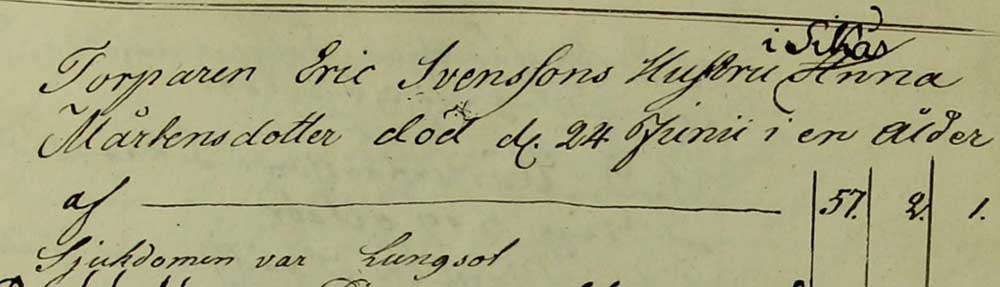 i Sikås
Torparen Eric Svenssons Hustru Anna
Mårtensdotter död d. 24 Junii i en ålder
af 57. 2. 1.
Sjukdomen var Lungsot